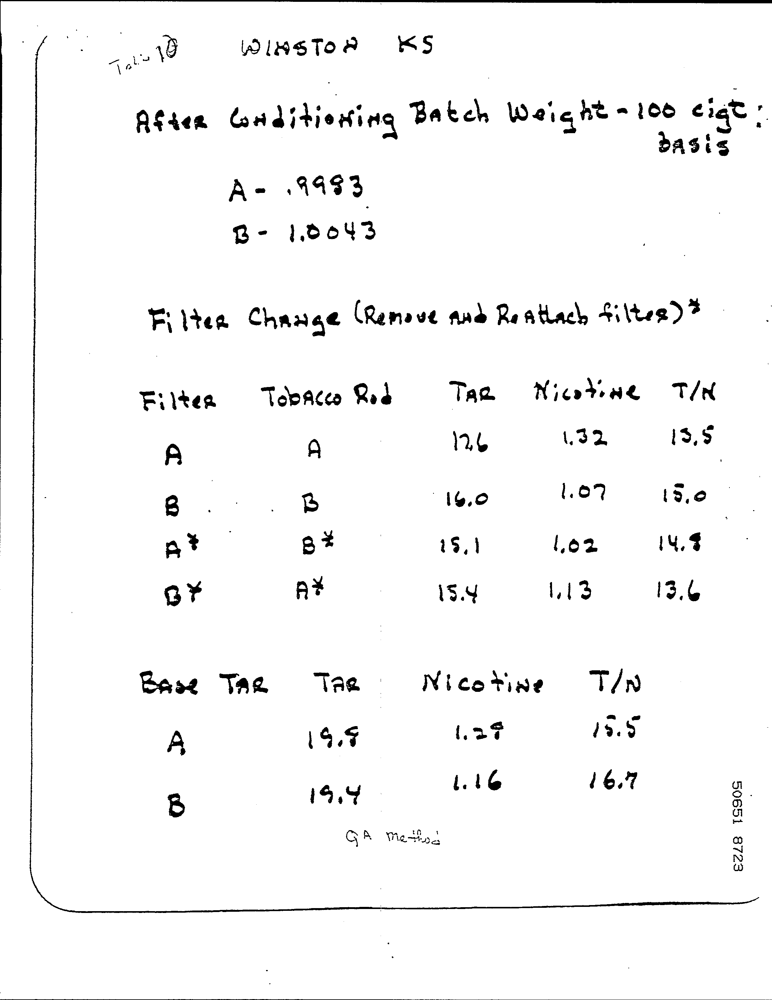 Table 10 WINSTON KS
After Conditioning Batch Weight - 100 cigt. basis
A - .9983
B - 1.0043
Filter Change (Remove And ReAttach filter)*
Filter Tobacco Rod TAR Nicotine T/N
A A 17.6 1.32 13.5
B B 16.0 1.07 15.0
A* B* 15.1 1.02 14.8
B* A* 15.4 1.13 13.6
Base TAR TAR Nicotine T/N
A 19.8 1.28 15.5
B 19.4 1.16 16.7
QA method
50651 8723